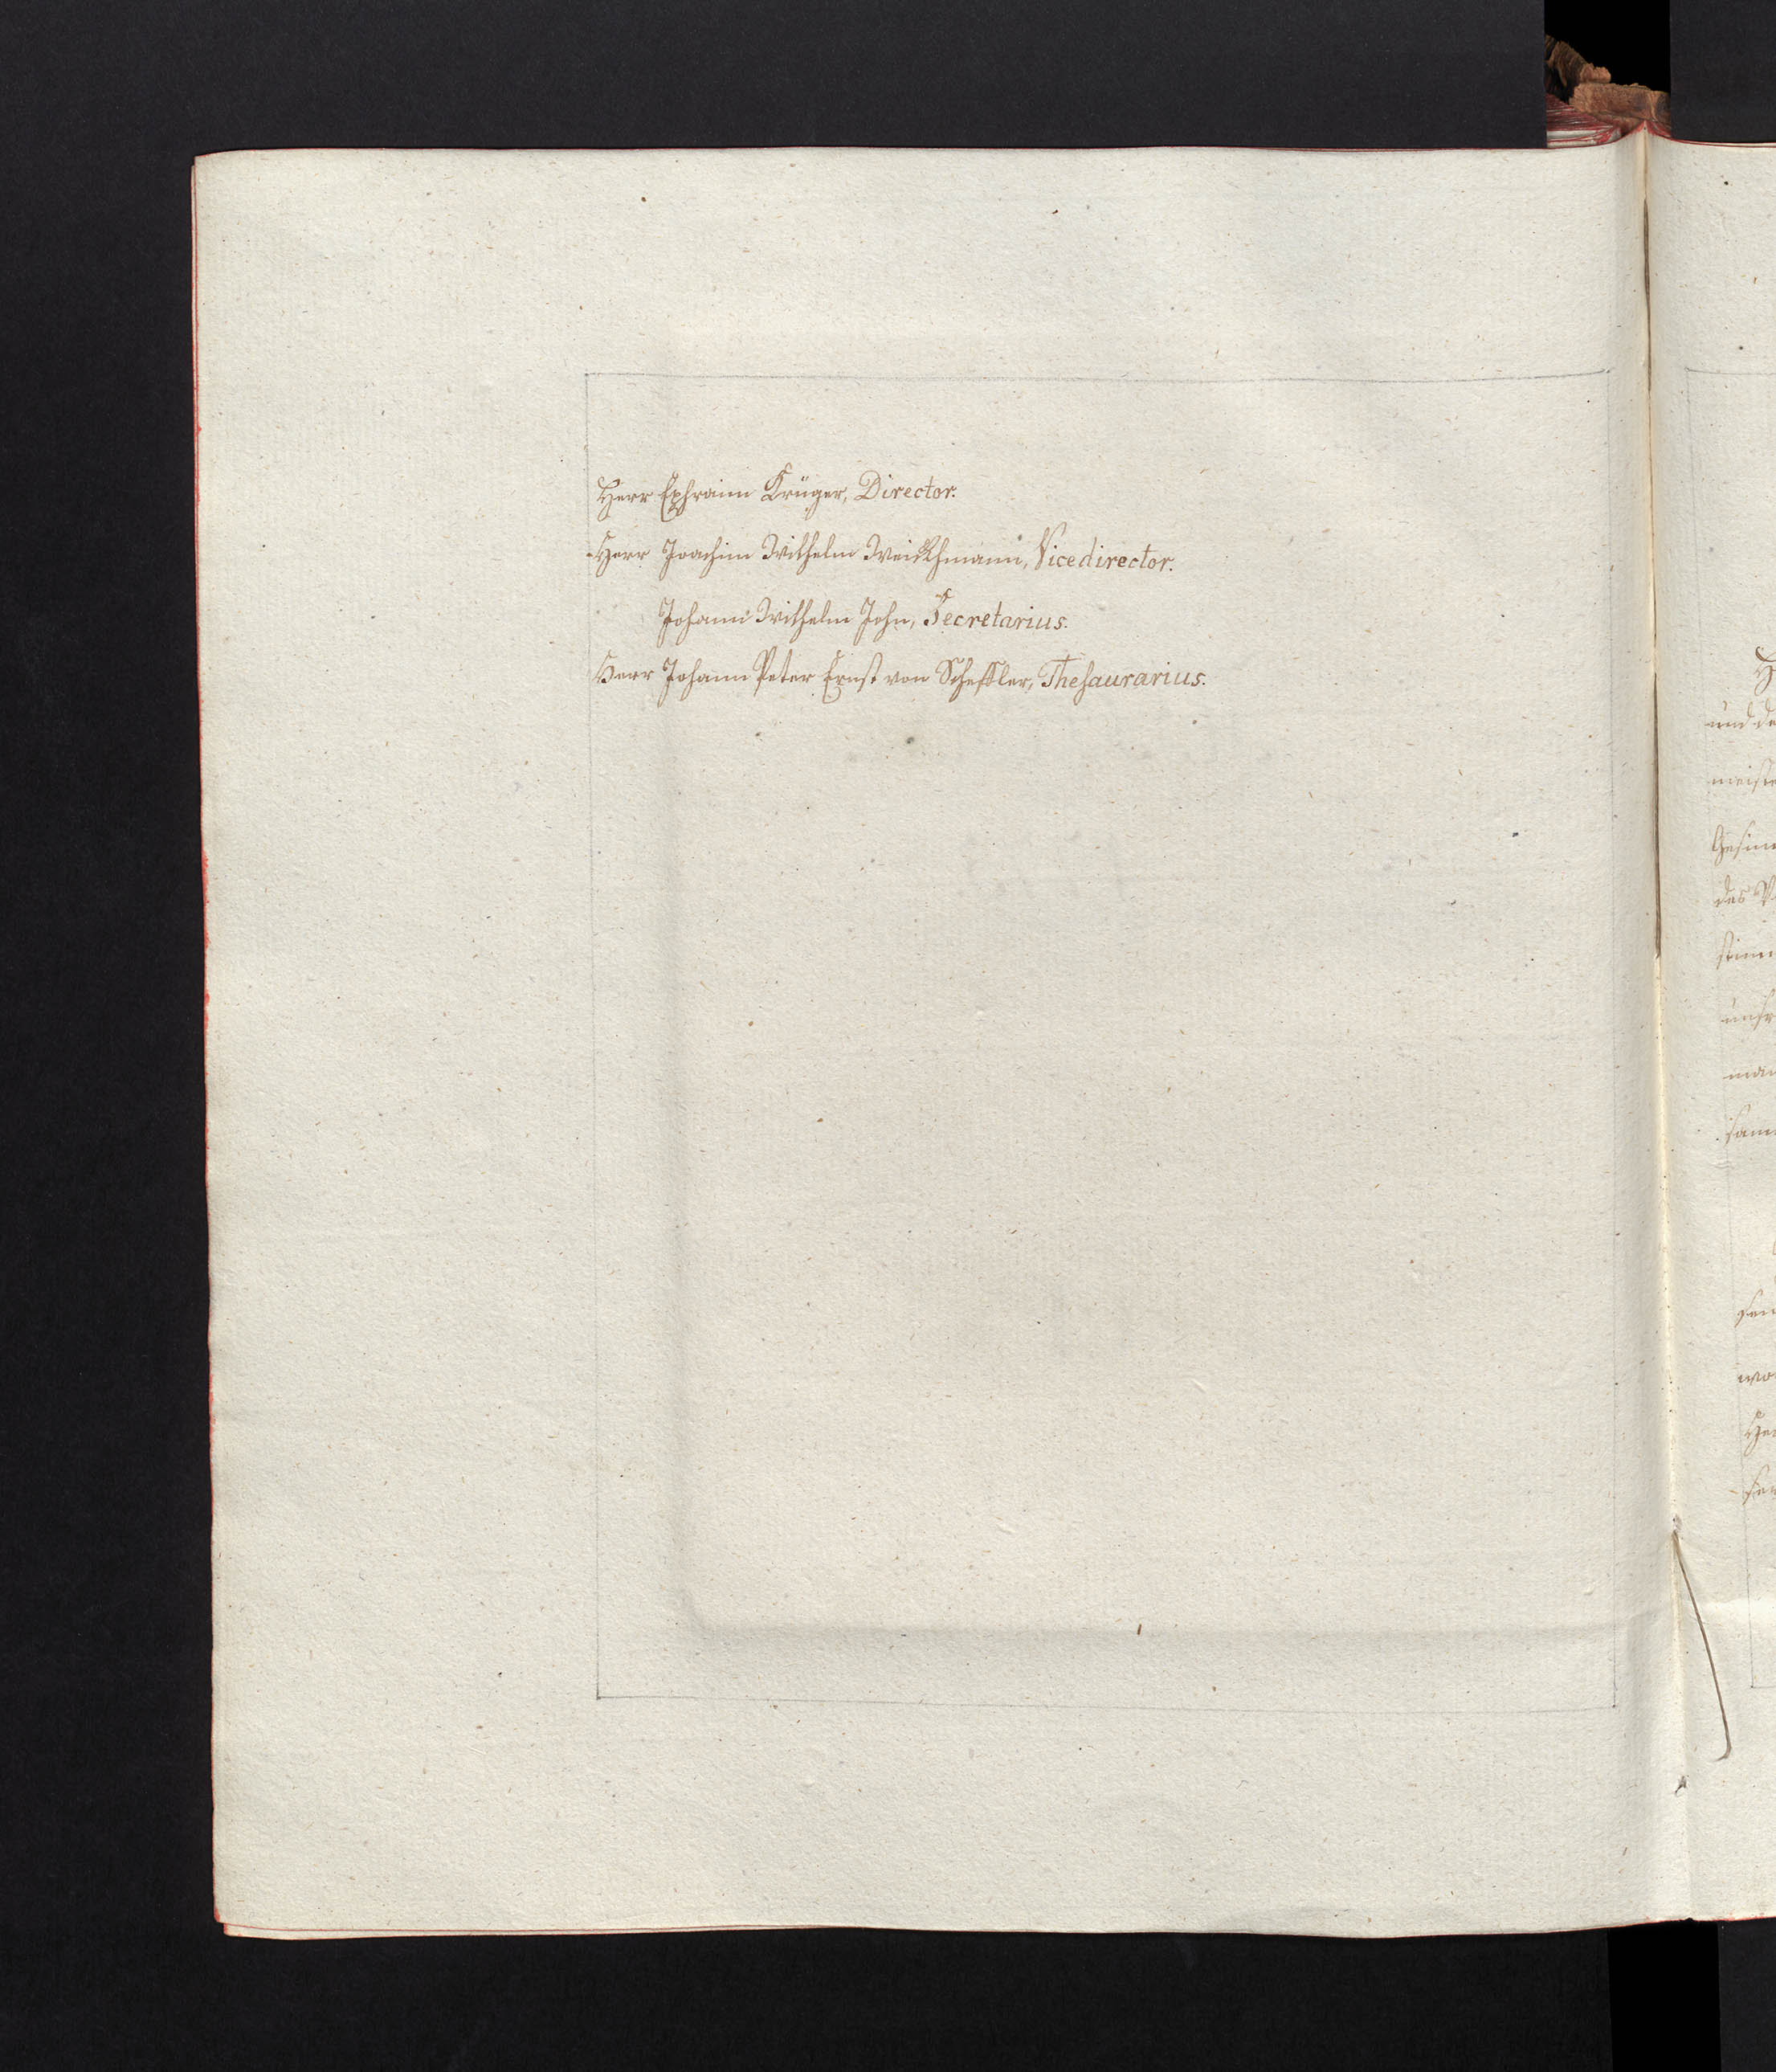 Herr Ephraim Krüger, Director.
Herr Joachim Wilhelm Weickhmann, Vicedirector.
Johann Wilhelm John, Secretarius.
Herr Johann Peter Ernst von Scheffler, Thesaurarius.
und de
meiste
des